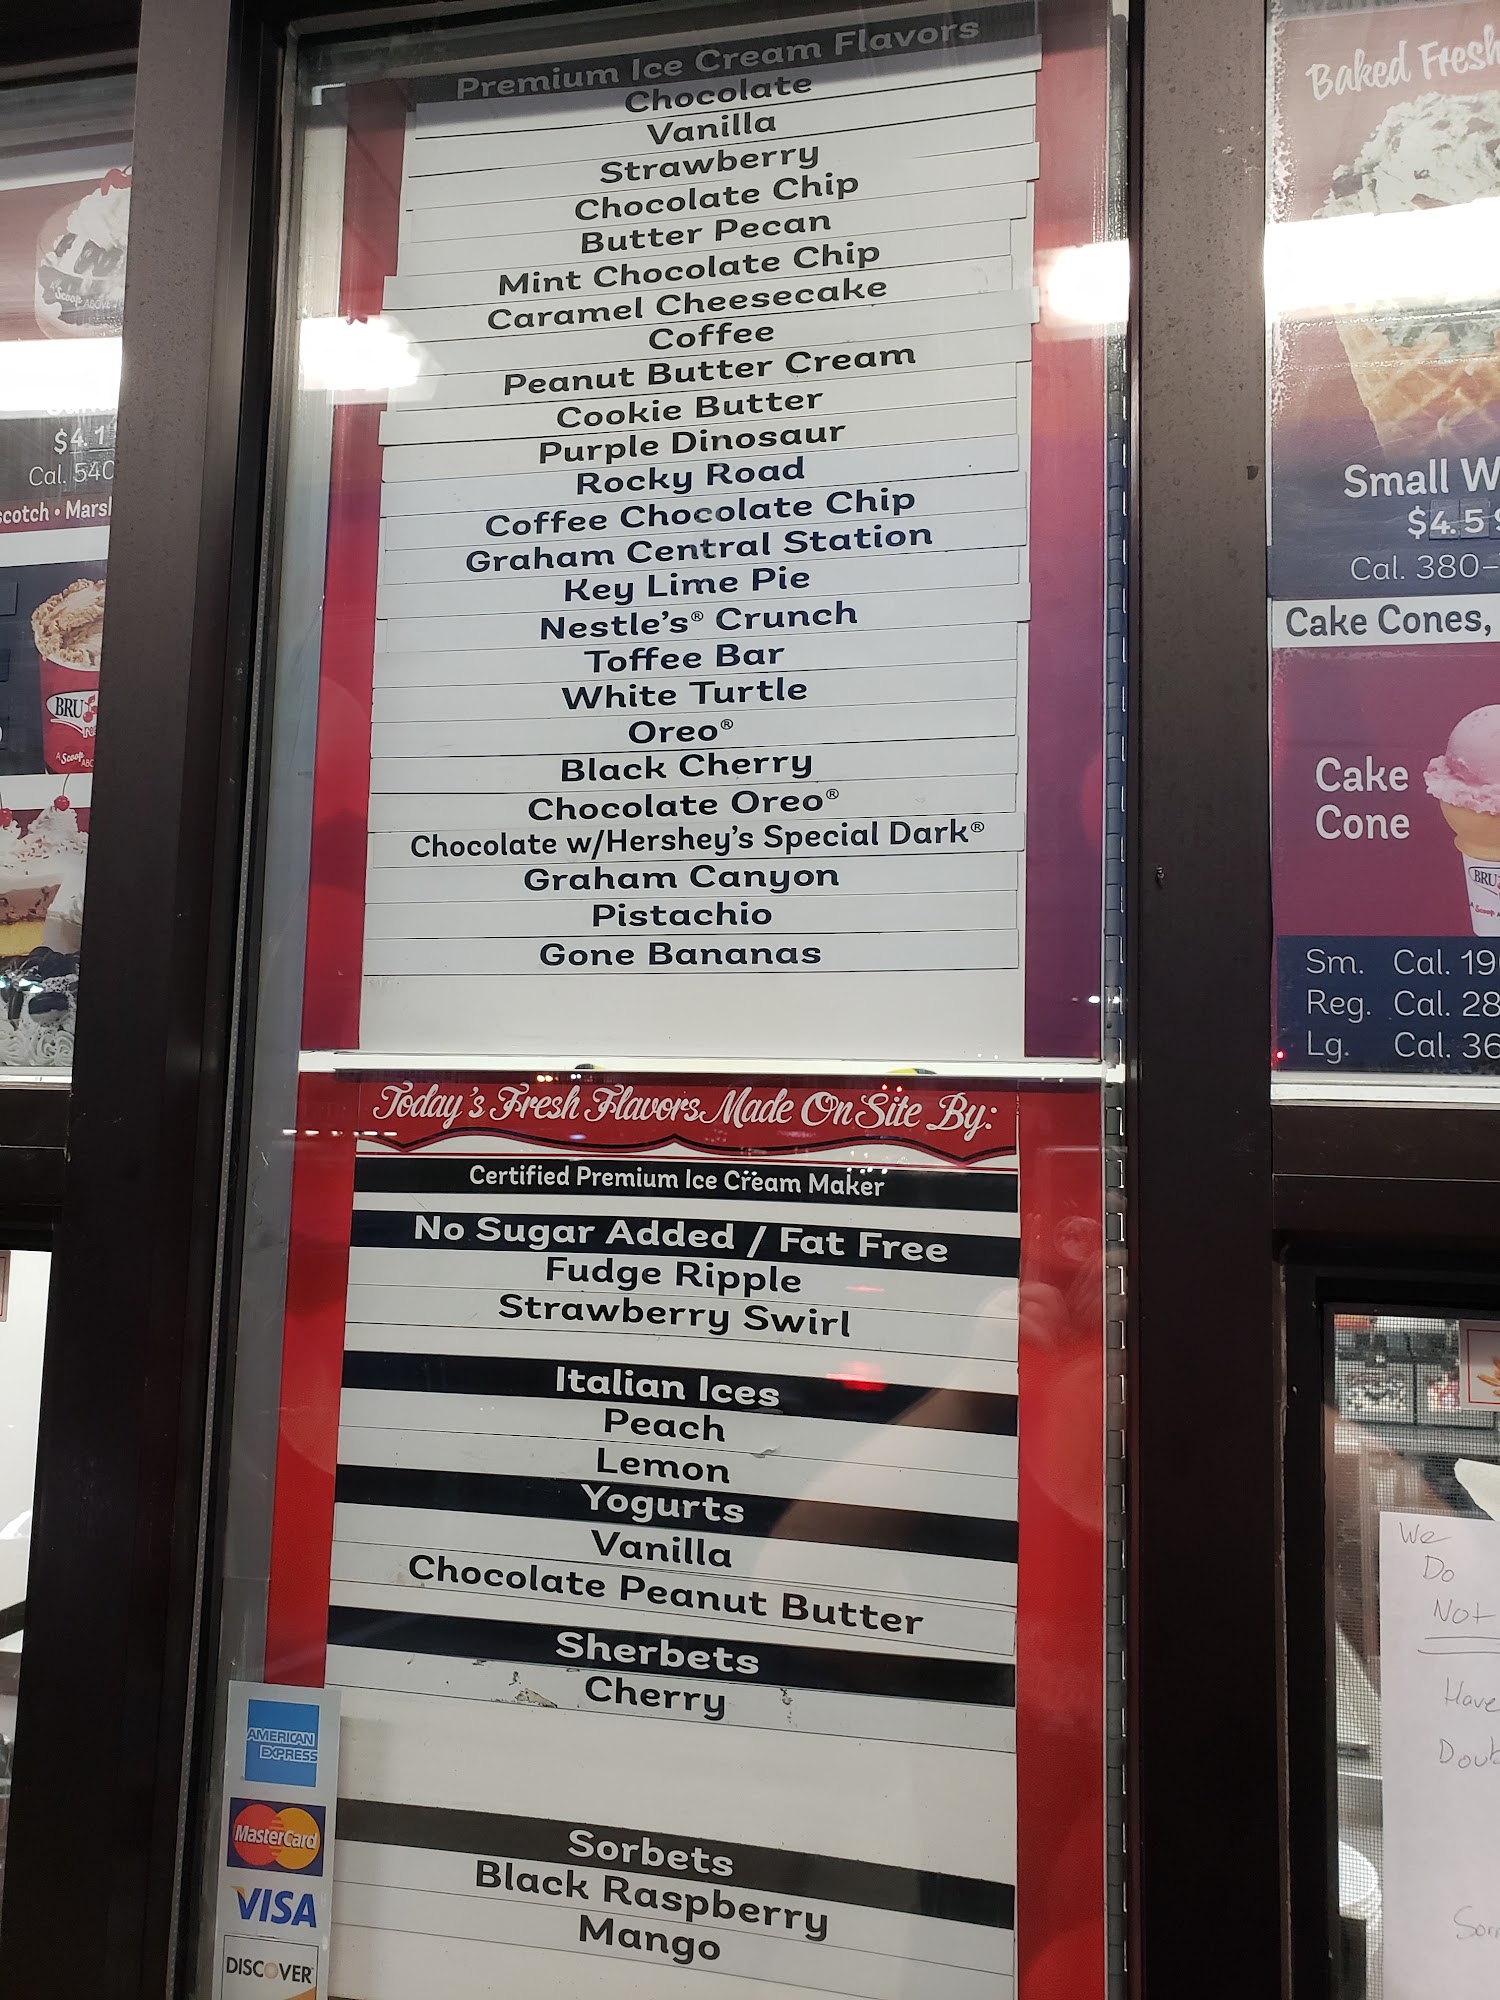 Premium Ice Cream Flavors
Chocolate
Vanilla
Strawberry
Chocolate Chip
Butter Pecan
Mint Chocolate Chip
Caramel Cheesecake
Coffee
Peanut Butter Cream
Cookie Butter
Purple Dinosaur
Rocky Road
Coffee Chocolate Chip
Graham Central Station
Key Lime Pie
Nestle's® Crunch
Toffee Bar
White Turtle
Oreo®
Black Cherry
Chocolate Oreo®
Chocolate w/Hershey's Special Dark®
Graham Canyon
Pistachio
Gone Bananas
Today's Fresh Flavors Made On Site By:
Certified Premium Ice Cream Maker
No Sugar Added / Fat Free
Fudge Ripple
Strawberry Swirl
Italian Ices
Peach
Lemon
Yogurts
Vanilla
Chocolate Peanut Butter
Sherbets
Cherry
Sorbets
Black Raspberry
Mango
AMERICAN
EXPRESS
MasterCard
VISA
DISCOVER
$4.1
Cal. 540
scotch • Marsh
BRU
A Scoop ABO
Baked Fresh
Small W
$4.59
Cal. 380-
Cake Cones,
Cake
Cone
BRU
Sm. Cal. 19
Reg. Cal. 28
Lg. Cal. 36
We
Do
Not
Have
Doub